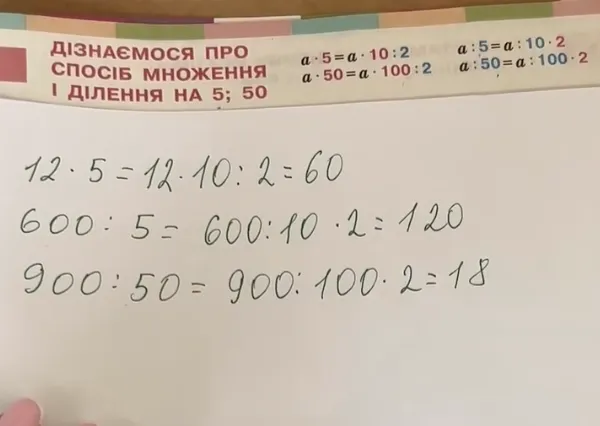 ДІЗНАЄМОСЯ ПРО
СПОСІБ МНОЖЕННЯ
І ДІЛЕННЯ НА 5; 50
a · 5 = a · 10 : 2
a · 50 = a · 100 : 2
a : 5 = a : 10 · 2
a : 50 = a : 100 · 2
12 · 5 = 12 · 10 : 2 = 60
600 : 5 = 600 : 10 · 2 = 120
900 : 50 = 900 : 100 · 2 = 18